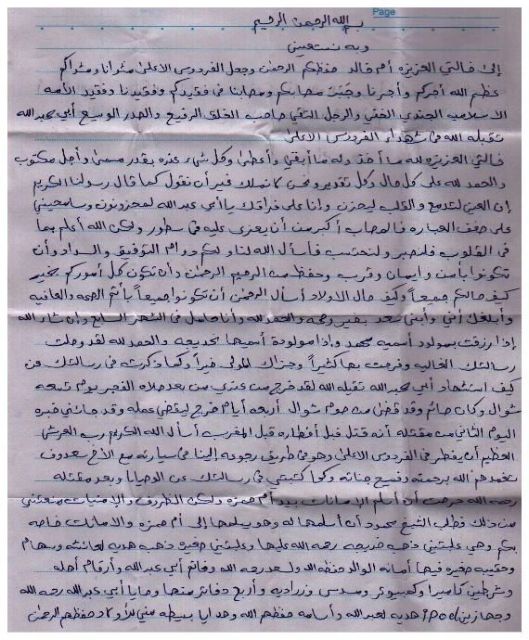 Page
بسم الله الرحمن الرحيم
وبه نستعين
إلى خالتي العزيزه أم خالد حفظكم الرحمن وجعل الفردوس الاعلى مثوانا ومثواكم
عظم الله أجركم وأجرنا وجبر مصابكم ومصابنا في فقيدكم وفقيدنا وفقيد الأمه
الاسلاميه الجندي الخفي والرجل التقي صاحب الخلق الرفيع والصدر الوسيع أبي عبد الله
تقبله الله في شهداء الفردوس الاعلى
خالتي العزيزه لله ما أخذ وله ما أبقي وأعطى وكل شيء عنده بقدر مسمى وأجل مكتوب
والحمد لله على كل حال وكل تقدير ونحن لا نملك غير أن نقول كما قال رسولنا الكريم
إن العين لتدمع والقلب ليحزن وإنا على فراقك يا أبي عبد الله لمحزونون وسامحيني
على ضعف العباره فالمصاب أكبر من أن يعزى عليه في سطور ولكن الله أعلم بما
في القلوب فلنصبر ولنحتسب فأسأل الله لنا ولكم دوام التوفيق والسداد وأن
تكونوا بأمن وإيمان وقرب وحفظ من الرحيم الرحمن وأن تكون كل أموركم بخير
كيف حالكم جميعاً وكيف حال الاولاد أسأل الرحمن أن تكونوا جميعاً بأتم الصحه والعافيه
وأبلغك أني وأبني سعد بخير ونعمه والحمد لله وأنا حامل في الشهر السابع وإن شاء الله
إذا رزقت بمولود أسميه محمد وإذا مولودة أسميها خديجه والحمد لله لقد وصلت
رسالتك الغاليه وفرحت بها كثيراً وجزاك المولى خيراً وكما ذكرت في رسالتك عن
كيف استشهاد أبي عبد الله تقبله الله لقد خرج من عندي من بعد صلاه الفجر يوم تسعه
شوال وكان صائم وقد قضى من صوم شوال أربعه أيام خرج ليقضي عمله وقد جائني خبره
اليوم الثاني من مقتله أنه قتل قبل أفطاره قبل المغرب أسأل الله الكريم رب العرش
العظيم أن يفطر في الفردوس الاعلى وهو في طريق رجوعه إلينا في سيارته مع الأخ سعدوف
تغمدهم الله برحمته وفسيح جنانه وكما كتبتي في رسالتك عن الوصايا وبعد مقتله
رحمه الله حرصت أن أسلم الامانات بيد أم حمزه ولكن الظروف والأمنيات منعتني
من ذلك فطلب الشيخ محمود أن أسلمها له وهو يسلمها إلى أم حمزه والامانات خاصه
بكم وهي علبتين ذهب خديجه رحمه الله عليها وعلبتين صغيره ذهب هديه لعائشه وسهام
وحقيبه صغيره فيها أمانه الوالد حفظه الله ولسعد رحمه الله وخاتم أبي عبد الله وأرقام أهله
وشرطين كاميرا وكمبيوتر ومسدس وزراديه وأربع دفاتر منها وصايا أبي عبد الله رحمه الله
وجهازين ipod هديه لعبد الله وأسامه حفظهم الله وهدايا بسيطه مني للأولاد حفظهم الرحمن